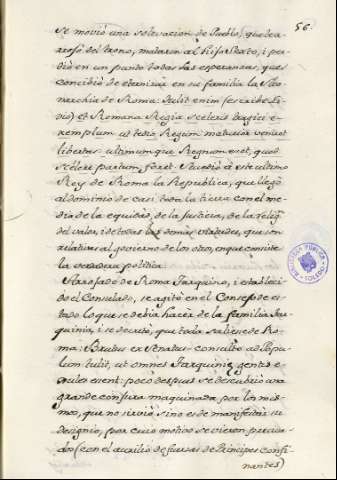 56.
Se movió una solevacion de Pueblo, que le ar-
rojó del trono, mataron al hijo Sexto, i per-
dió en un punto todas las esperanzas, que
concibió de eternizar en su familia la Mo-
narchia de Roma: Tulit enim (escribe Li-
vio) et Romana Regia sceleris tragici e-
xemplum ut tedio Regum maturior veniret
libertas: ultimumque Regnum esset, quod
scelere partum foret. Sucedió á este ultimo
Rey de Roma la Republica, que llegó
al dominio de casi toda la tierra con el me-
dio de la equidad, de la Justicia, de la relig.n
del valor, i de todas las demas virtudes, que son
relativas al govierno de los otros, en que consiste
la verdadera politica.
Arrojado de Roma Tarquino, i estableci-
do el Consulado, se agitó en el Consejo de es-
tado lo que se debia hacer de la familia Tar-
quinia, i se decretó, que toda saliese de Ro-
ma: Brutus ex Senatus-consulto ad Popu-
lum tulit, ut omnes Tarquiniæ gentis e-
xules essent: poco despues se descubrió una
grande conjura maquinada por los mis-
mos, que no sirvió sino es de manifestar su
designio, por cuio motivo se vieron precisa-
dos (con el auxilio de fuerzas de Principes confi-
nantes)
BIBLIOTECA PÚBLICA
TOLEDO